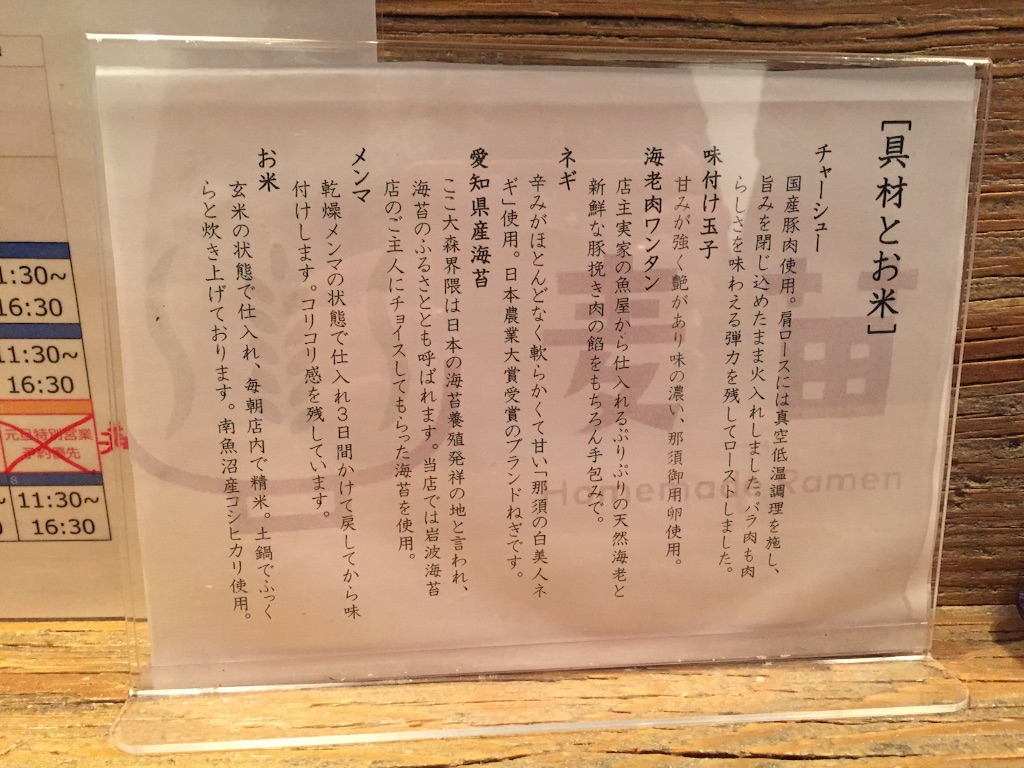 [具材とお米]
チャーシュー
国産豚肉使用。肩ロースには真空低温調理を施し、
旨みを閉じ込めたまま火入れしました。バラ肉も肉
らしさを味わえる弾力を残してローストしました。
味付け玉子
甘みが強く艶があり味の濃い、那須御用卵使用。
海老肉ワンタン
店主実家の魚屋から仕入れるぷりぷりの天然海老と
新鮮な豚挽き肉の餡をもちろん手包みで。
ネギ
辛みがほとんどなく軟らかくて甘い「那須の白美人ネ
ギ」使用。日本農業大賞受賞のブランドねぎです。
愛知県産海苔
ここ大森界隈は日本の海苔養殖発祥の地と言われ、
海苔のふるさととも呼ばれます。当店では岩波海苔
店のご主人にチョイスしてもらった海苔を使用。
メンマ
乾燥メンマの状態で仕入れ3日間かけて戻してから味
付けします。コリコリ感を残しています。
お米
玄米の状態で仕入れ、毎朝店内で精米。土鍋でふっく
らと炊き上げております。南魚沼産コシヒカリ使用。
麦苗
Homemade Ramen
11:30~
16:30
11:30~
16:30
元日特別営業
予約優先
8
11:30~
16:30